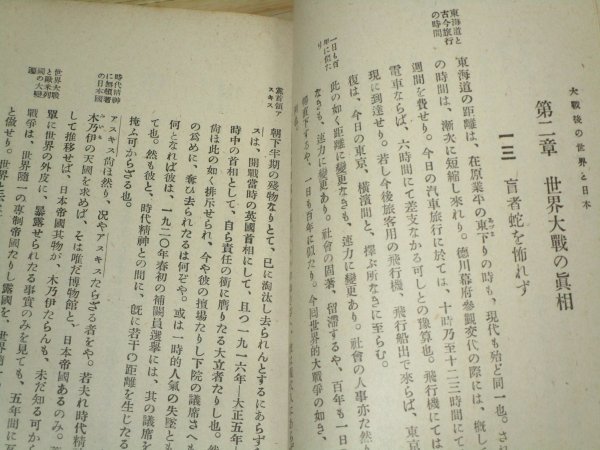 大戰後の世界と日本
第二章　世界大戰の眞相
一三　盲者蛇を怖れず
東海道と
古今旅行
の時間
東海道の距離は、在原業平の東下りの時も、現代も殆ど同一也。さ
の時間は、漸次に短縮し來れり。德川幕府參覲交代の際には、概し
週間を費せり。今日の汽車旅行に於ては、十時乃至十二三時間にて
電車ならば、六時間にて差支なかる可しとの豫算也。飛行機にては
現に到達せり。若し今後旅客用の飛行機、飛行船出で來らば、東京
復は、今日の東京、橫濱間と、擇ぶ所なきに至らむ。
一日も百
年に似た
り
此の如く距離に變更なきも、速力に變更あり。社會の人事亦た然り
なきも、速力に變更あり。社會の固著、留滯するや、百年も一日の
するや、一日も百年に似たり。今囘世界的大戰爭の如き、
黨首領ア
スキス
朝下年期の殘物なりとて、已に淘汰し去られんとするにあらず
スは、開戰當時の英國首相にして、且つ一九一六年―大正五年
時中の首相として、自ら責任の衝に膺りたる大立者たりし也。然
尙ほ此の如く排斥せられ、今や彼の擅場たりし下院の議席さへも
の爲めに、奪ひ去られたるは何ぞや。或は一時的人氣の失墜とも
何となれば彼は、一九二〇年春初の補闕員選擧には、其の議席を
ても也。然も彼と、時代精神との間に、旣に若干の距離を生じたる
掩ふ可からざる也。
時代精神
に無頓著
の日本國
アスキス尙ほ然り、況やアスキスたらざる者をや。若夫れ時代精
木乃伊の天國を求めば、そは唯だ博物館と、日本帝國あるのみ。
して推移せば、日本帝國其物が、木乃伊たらんも、未だ知る可から
世界大戰
と歐米列
國の大經
單に世界の外皮に、暴露せられたる事實のみを見ても、五年間に
戰爭は、世界隨一の專制帝國たりし露國を、世界